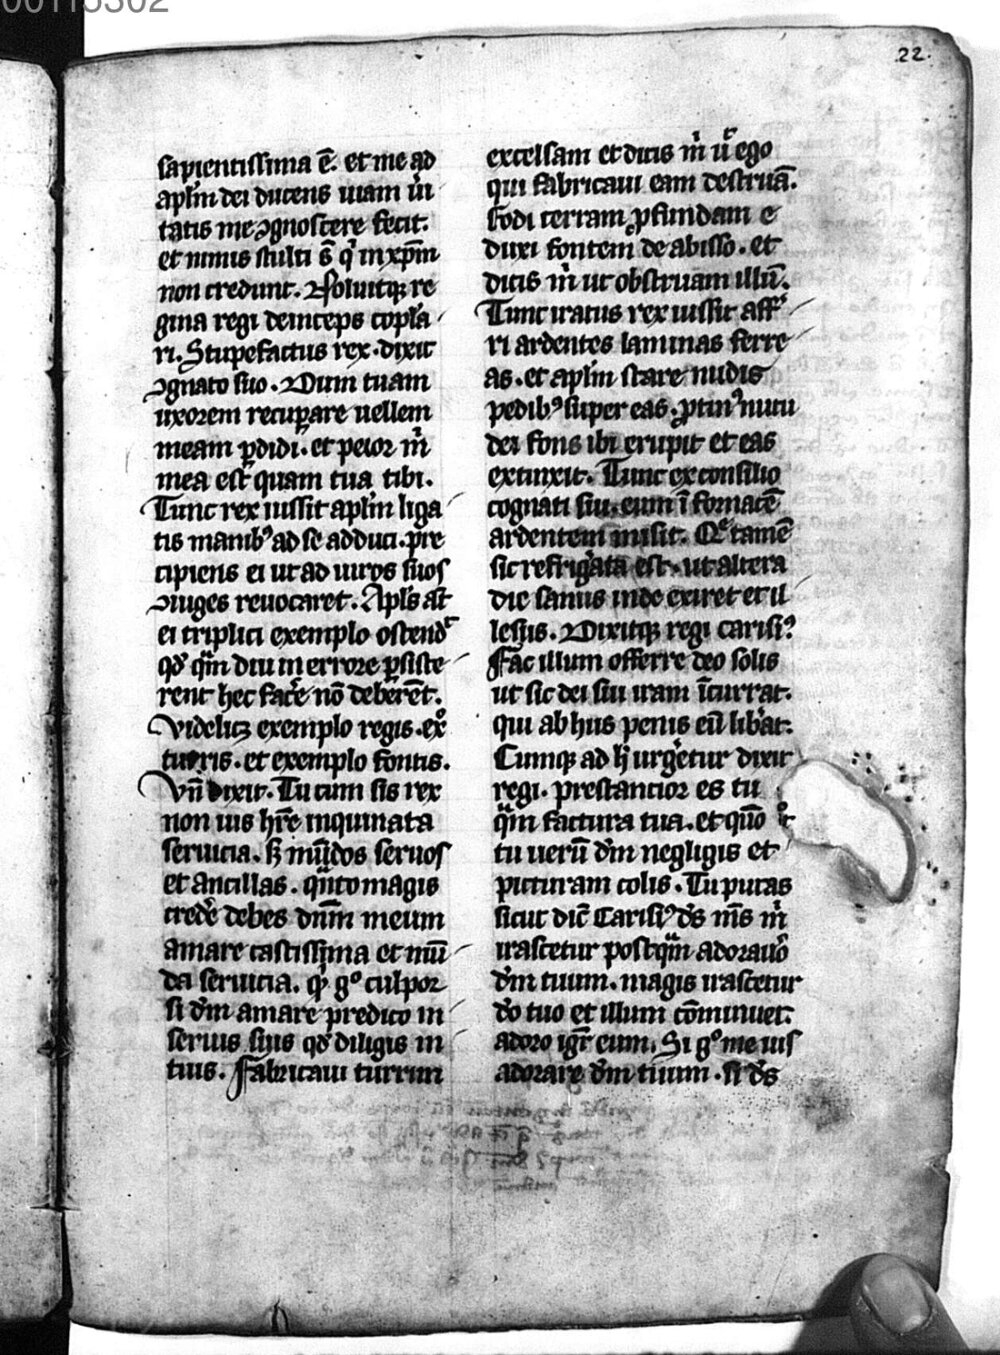 22.
sapientissima ē. et me ad
apl'm dei ducens uiam ūi
tatis me ꝯgnoscere fecit.
et nimis stulti s̄t q' in xp̄m
non credunt. Noluitqꝫ re
gina regi deinceps copla
ri. Stupefactus rex. dixit
ꝯgnato suo. Dum tuam
uxorem recuꝑare uellem
meam ꝑdidi. et peior m̄
mea est quam tua tibi.
Tunc rex iussit apl'm liga
tis manibꝰ ad se adduci. pre
cipiens ei ut ad uiros suos
ꝯiuges reuocaret. Apl's aūt
ei triplici exemplo ostend'
qd' qm̄ diu in errore ꝑsiste
rent hec fac'e nō deber̄ēt.
Videlicꝫ exemplo regis. exº
turris. et exemplo fontis.
Vn̄ dixit. Tu cum sis rex
non uis hr̄e inquinata
seruicia. sꝫ mūdos seruos
et ancillas. q̄nto magis
cred'e debes dn̄m meum
amare castissima et mū
da seruicia. qͥ gº culpor
si dm̄ amare predico in
seruis suis qd' diligis in
tuis. Fabricaui turrim
excelsam et dicis m̄ ut ego
qui fabricaui eam destruā.
Fodi terram ꝓfundam e
duxi fontem de abisso. et
dicis m̄ ut obstruam illū.
Tunc iratus rex iussit aff'
ri ardentes laminas ferre
as. et apl'm stare nudis
pedibꝰ super eas. ꝓtinꝰ nutu
dei fons ibi erupit et eas
extinxit. Tunc ex consilio
cognati sui. eum ī fornacē
ardentem misit. Que tamē
sic refrig'ata est. ut altera
die sanus inde exiret et il
lesus. Dixitqꝫ regi carisiꝰ
Fac illum offerre deo solis
ut sic dei sui iram īcurrat.
qui ab hiis penis eū lib'at.
Cumqꝫ ad h̄ urg'etur dixit
regi. prestantior es tu
q̄m factura tua. et quō
tu uerū dm̄ negligis et
picturam colis. Tu putas
sicut dic̄ Carisiꝰ ds̄ ms̄ m̄
irascetur postq̄m adorauº
dm̄ tuum. magis irascetur
dō tuo et illum cōminuet.
adoro igr̄ eum. Si gº me uis
adorare dm̄ tuum. si ds̄